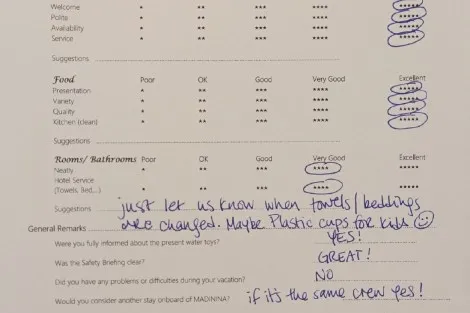 Welcome * ** *** **** *****
Polite * ** *** **** *****
Availability * ** *** **** *****
Service * ** *** **** *****
Suggestions
Food Poor OK Good Very Good Excellent
Presentation * ** *** **** *****
Variety * ** *** **** *****
Quality * ** *** **** *****
Kitchen (clean) * ** *** **** *****
Suggestions
Rooms/ Bathrooms Poor OK Good Very Good Excellent
Neatly * ** *** **** *****
Hotel Service
(Towels, Bed,..) * ** *** **** *****
Suggestions just let us know when towels/beddings
General Remarks are changed. Maybe Plastic cups for kids ☺
Were you fully informed about the present water toys? YES!
Was the Safety Briefing clear? GREAT!
Did you have any problems or difficulties during your vacation? NO
Would you consider another stay onboard of MADININA? if it's the same crew yes!